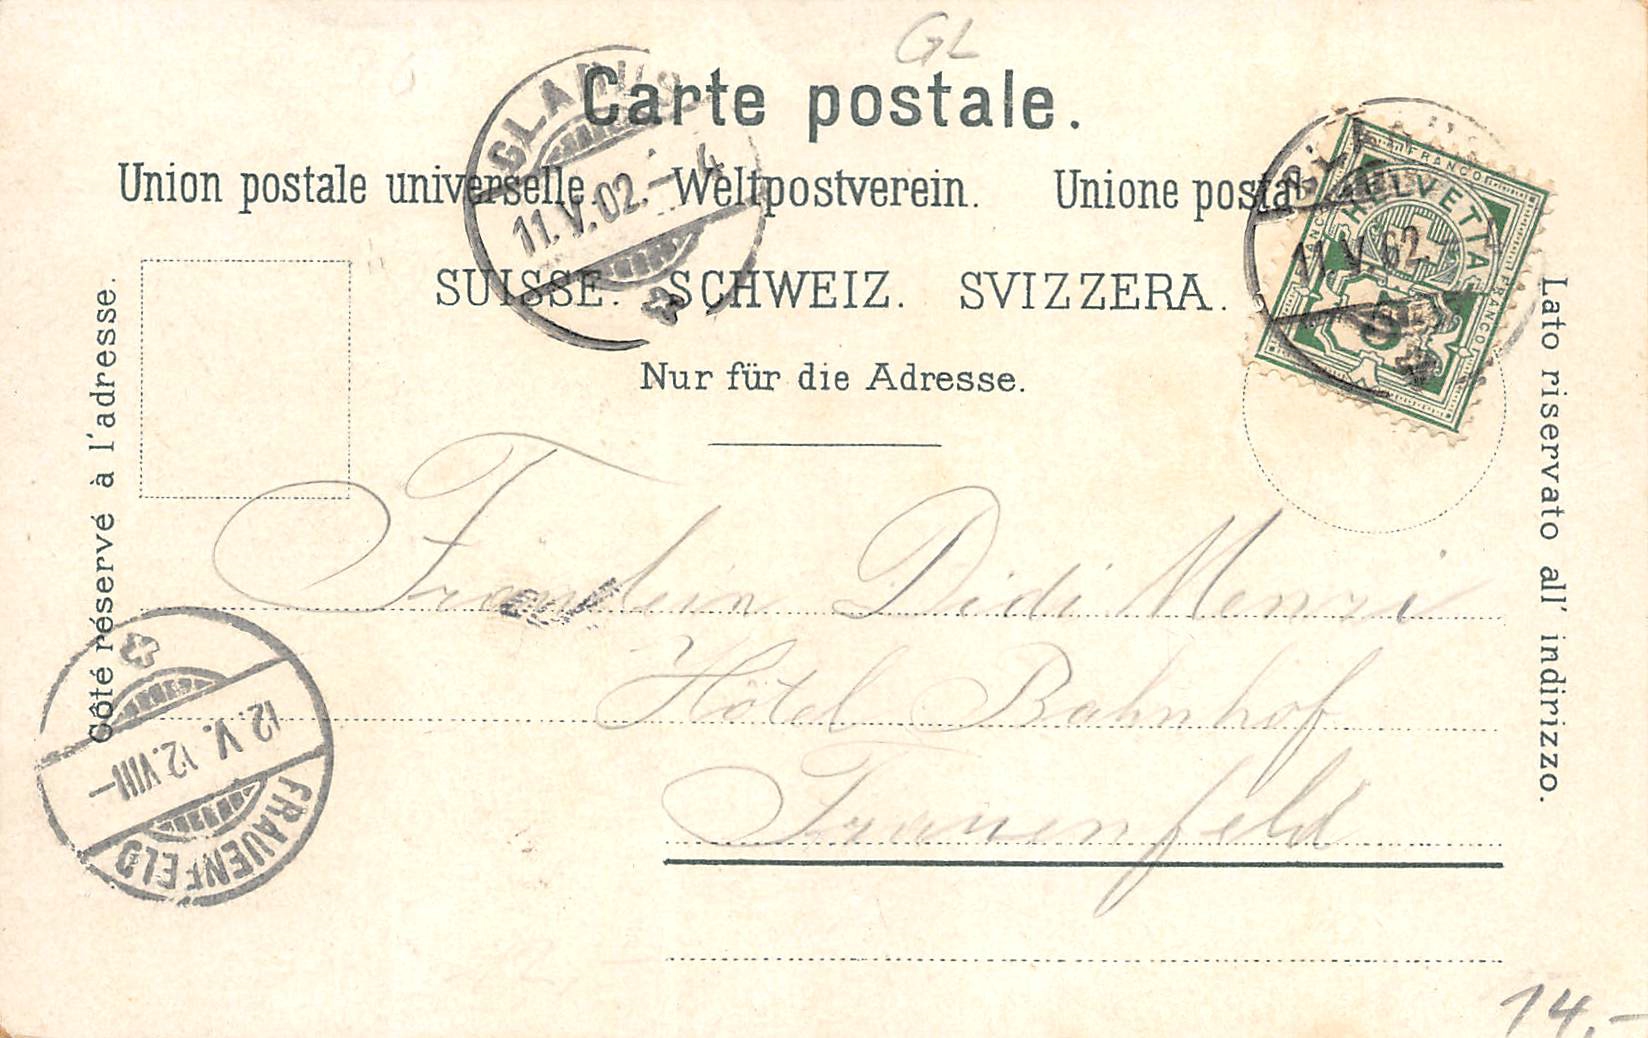 GL
Carte postale.
Union postale universelle. Weltpostverein. Unione posta
SUISSE. SCHWEIZ. SVIZZERA.
Nur für die Adresse.
Côté réservé à l'adresse.
Lato riservato all' indirizzo.
GLARUS
11.V.02.–4
GLARUS
11.V.02.–
FRANCO
HELVETIA
FRANCO
FRANCO
5
Fräulein Didi Menzi
Hôtel Bahnhof
Frauenfeld
12.V.02.VIII–
FRAUENFELD
14.–